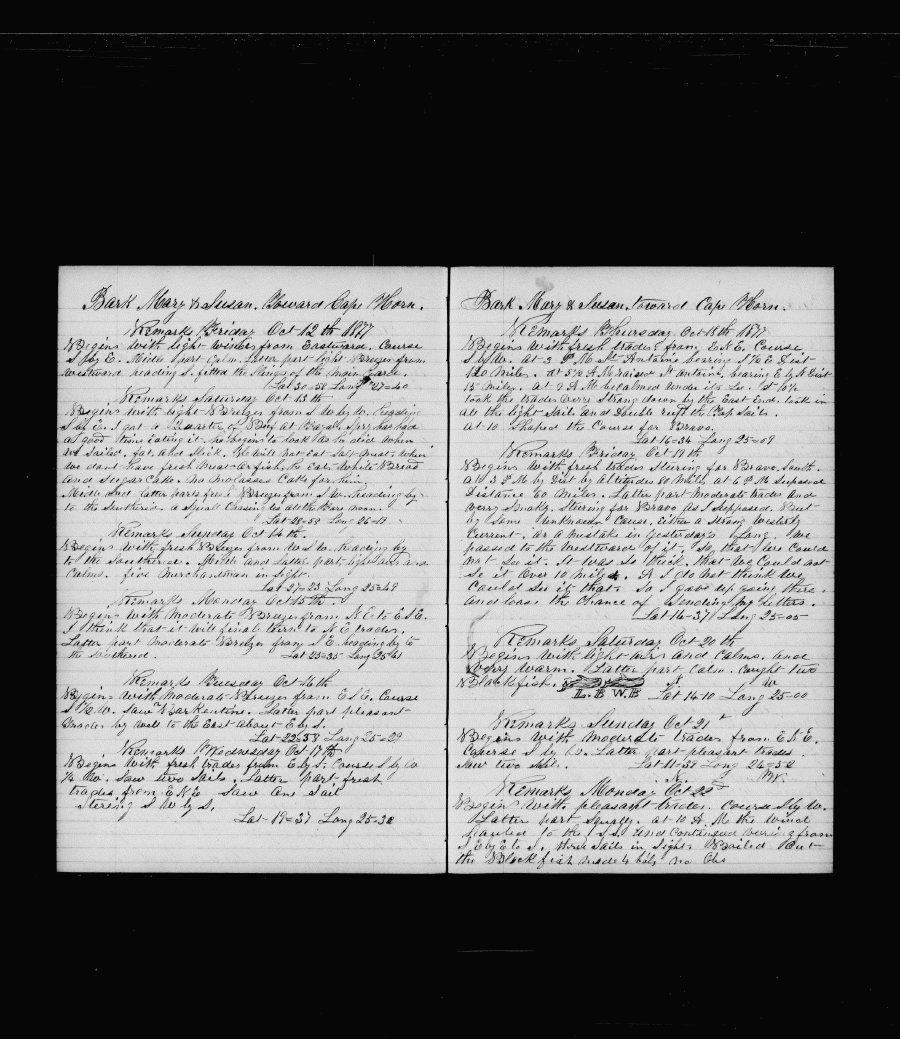 Bark Mary & Susan. Toward Cape Horn.
Remarks Friday Oct 12th 1877
Begins with light winds from Eastward. Course
S by E. Middle part Calm. Latter part light Breezes from
westward heading S. fitted the of the Main
Lat 30=58 Long 27=40
Remarks Saturday Oct 13th
Begins with light Breezes from S W by W. heading
S by E. I got a Quarter of Beef at Fayal, has had
a good time Eating it. he begins to look as he did when
we Sailed. fat. and Slick. He will not eat Salt Meat, when
we dont have fresh Meat or fish, he eats White Bread
and Sugar Cake. no Molasses Cake for him.
Middle and latter parts fresh Breezes from S W. heading by
to the Southerd. a Small Crossing
Lat 28=58 Long 26=
Remarks Sunday Oct 14th.
Begins with fresh Breezes from W S W. heading by
to the Southerd. Middle and Latter part light airs and
Calms. five Merchantmen in Sight.
Lat 27=23 Long 25=49
Remarks Monday Oct 15th.
Begins with Moderate Breezes from N E to E S E.
I think that it will final Turn to N E trades.
Latter part moderate Breezes from S E heading by to
the Southerd. Lat 25=35 Long 25=41
Remarks Tuesday Oct 16th
Begins with Moderate Breezes from E S E. Course
S W. Saw Barkentine. Latter part pleasant
by well to the East about E by S.
Lat 22=58 Long 25=29
Remarks Wednesday Oct 17th
Begins with fresh trades from E by S. Course S by W
1/2 W. Saw two Sails. Latter part fresh
trades from E N E Saw one Sail
Stering S W by S.
Lat 19=37 Long 25=32
Bark Mary & Susan. toward Cape Horn.
Remarks Thursday Oct 18th 1877
Begins with fresh trades from E N E. Course
S by W. at 3 P M St Antoine bearing S 1/2 E Dist
120 Miles. at 5 1/2 A M raised St antoine, bearing E by N Dist
15 Miles. at 9 A M becalmed under its Lee. at 10 1/2
took the trades very Strong down by the East End. took in
all the light Sails and Double reeft the Top Sails.
At 10 Shaped the Course for Brava.
Lat 16=34 Long 25=09
Remarks Friday Oct 19th
Begins with fresh trades Steering for Brava South.
at 3 P M by Dist by Altitudes 80 Miles at 6 P M Suposed
Distance 60 Miles. Latter part Moderate trades and
very Smoky. Steering for Bravo as I Supposed. But
by Some unknown Cause. Either a Strong Westerly
Current, or a Mistake in Yesterday's Long. We
passed to the Westward of it. So, that we Could
not See it. It was So thick, that we Could not
Se it Over 10 Miles. & I do not think We
Could See it that. So I gave up going there,
and loose the Chance of Sending my Letters.
Lat 14=37 Long 25=05
Remarks Saturday Oct 20th
Begins with light airs and Calms. and
Very warm. Latter part Calm. Caught two
Blackfish.
L.B W.B
N W
Lat 14=10 Long 25=00
Remarks Sunday Oct 21
Begins with moderate trades from E N E.
Course S by W. Latter part pleasant trades
Saw two Sail. Lat 11=58 Long 24=52
N W.
Remarks Monday Oct 22
Begins with pleasant trades. Course S by W.
Latter part Squally. at 10 A. M the wind
hauled to the S.E. and Continued vering from
S E by E to S. three Sails in Sight. Boiled Out
the Blackfish made 4 bbls no Obs